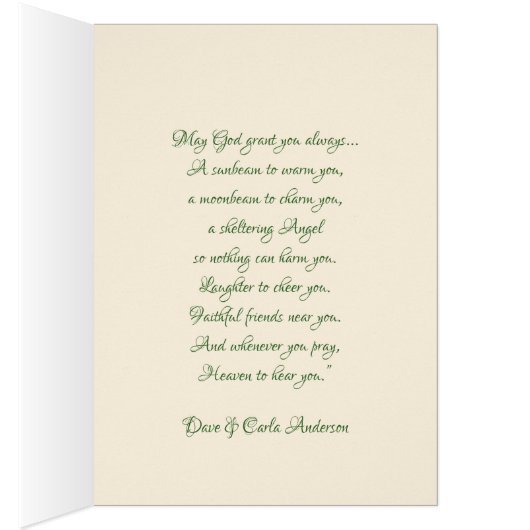 May God grant you always...
A sunbeam to warm you,
a moonbeam to charm you,
a sheltering Angel
so nothing can harm you.
Laughter to cheer you.
Faithful friends near you.
And whenever you pray,
Heaven to hear you."
Dave & Carla Anderson